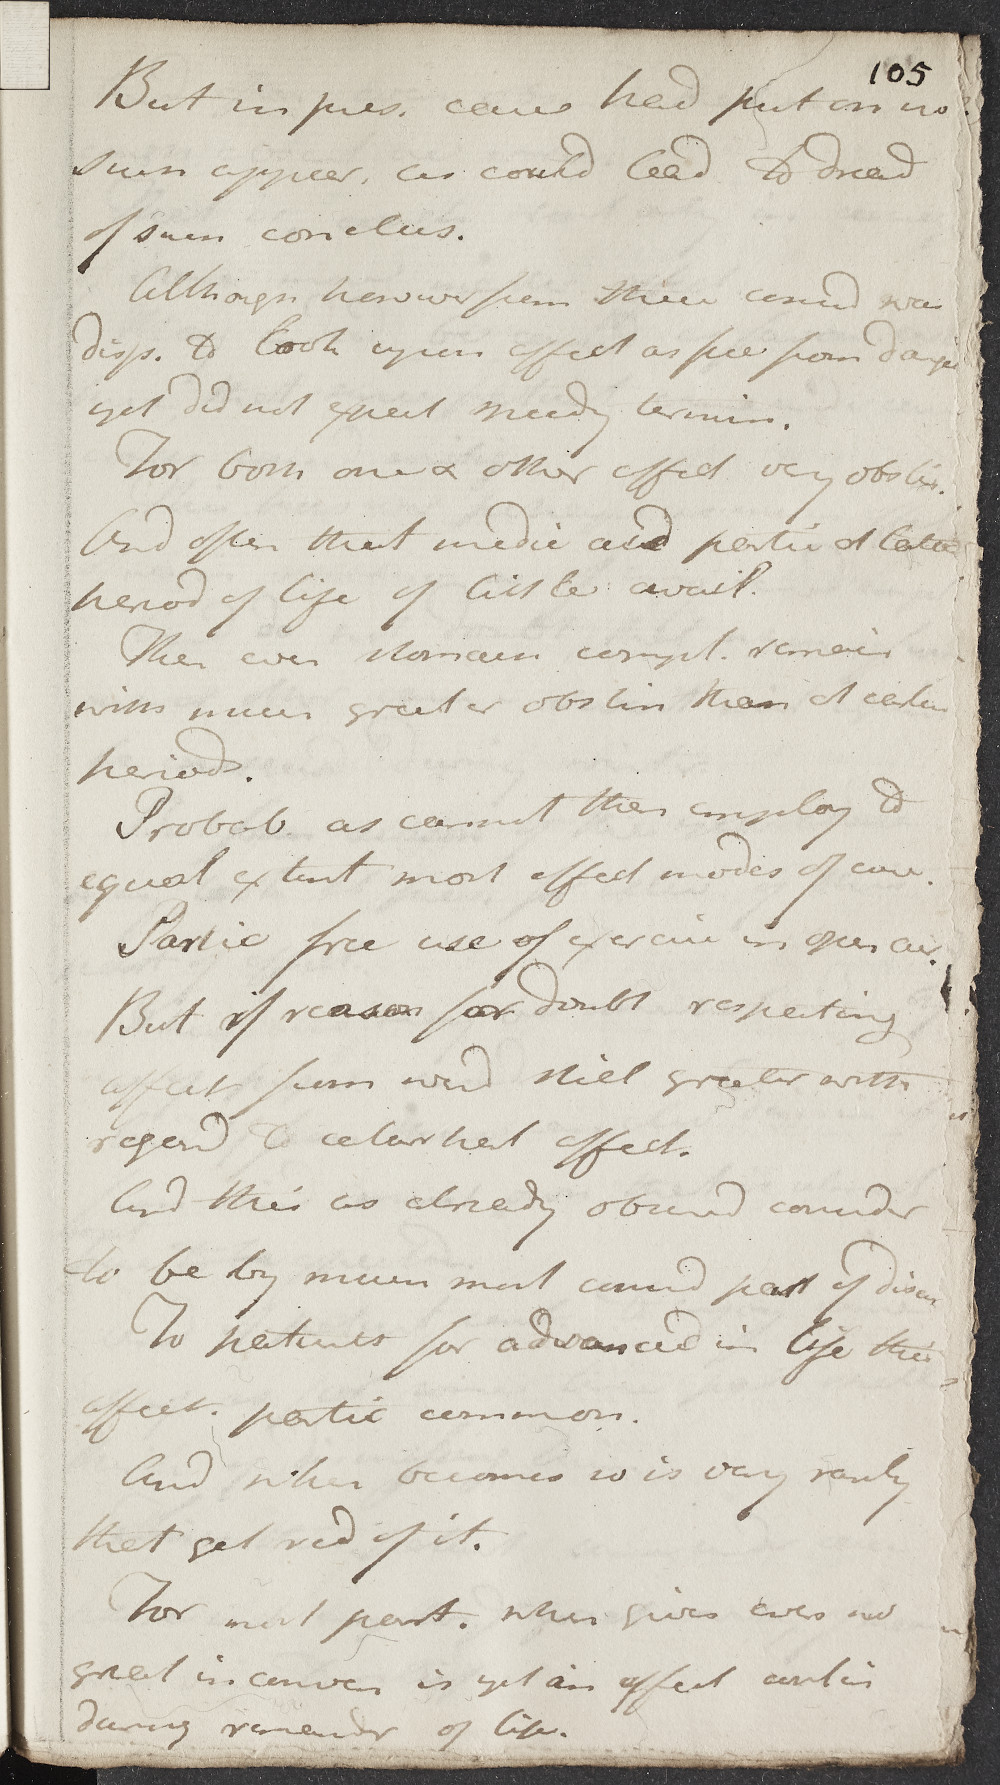 105
But in pres. case had put on no
such appear. as could lead to dread
of such conclus.
Although however from these consid was
disp. to look upon affect as free from danger
yet did not expect speedy termin.
For both one & other affect very obstin.
And often that medic aid partic at latter
period of life of little avail.
Then even stomach compl. remain
with much greater obstin than at earlier
periods.
Probab. as cannot then employ to
equal extent most effect modes of cure.
Partic free use of exercise in open air.
But if reason for doubt respecting
affect from were still greater with
regard to catarrhal affect.
And this as already observed consider
to be by much most consid part of disease
To patients far advanced in life this
affect. partic common.
And when becomes so is very rarely
that get red of it.
For most part. when gives even no
great inconven is yet an affect contin
during remainder of life.